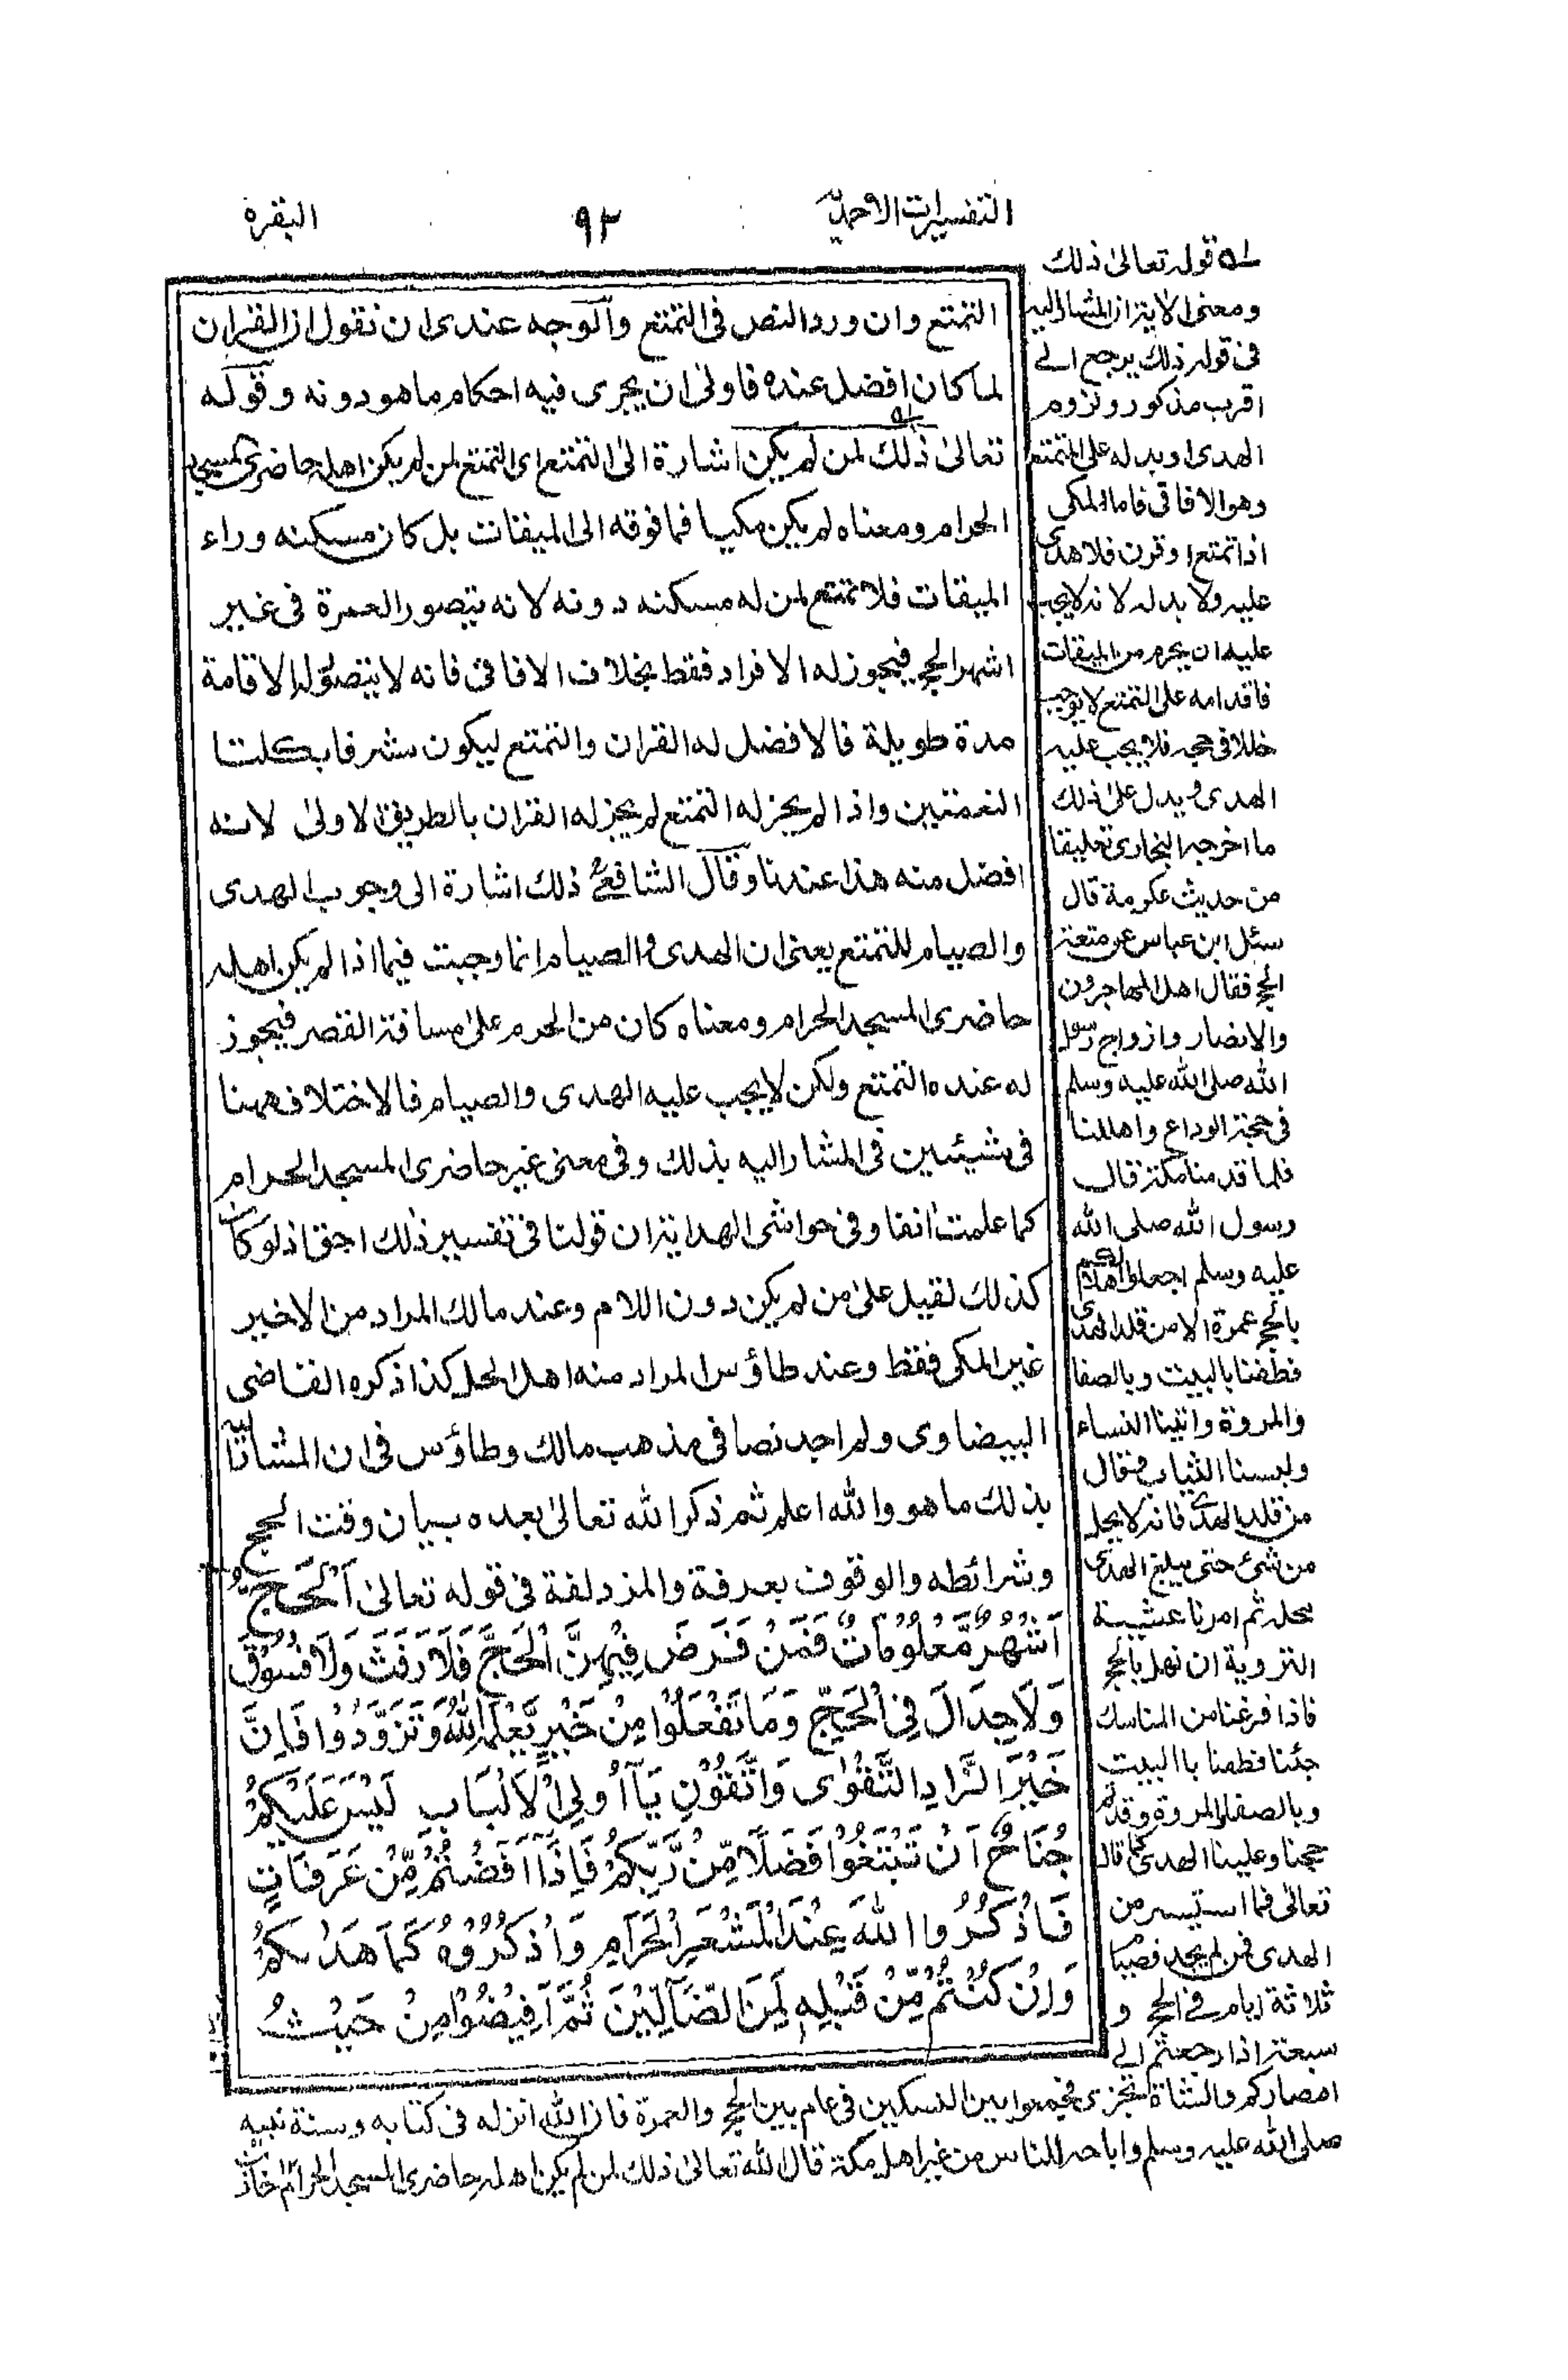 التفسيرات الاحمدية
٩٢
البقرة
التمتع وان ورد النص فى التمتع والوجه عندى ان نقول ان القران
لما كان افضل عنده فاولى ان يجرى فيه احكام ما هو دونه وقوله
تعالى ذلك لمن لم يكن اشارة الى التمتع اى التمتع لمن لم يكن اهله حاضرى المسجد
الحرام ومعناه لم يكن مكيا فما فوقه الى الميقات بل كان مسكنه وراء
الميقات فلا تمتع لمن له مسكنه دونه لانه يتصور العمرة فى غير
اشهر الحج فيجوز له الافراد فقط بخلاف الافاقى فانه لا يتصور له الاقامة
مدة طويلة فالافضل له القران والتمتع ليكون مشرفا بكلتا
النعمتين واذا لم يجز له التمتع لم يجز له القران بالطريق الاولى لانه
افضل منه هذا عندنا وقال الشافعى ذلك اشارة الى وجوب الهدى
والصيام للتمتع يعنى ان الهدى والصيام انما وجبت فيما اذا لم يكن اهله
حاضرى المسجد الحرام ومعناه كان من الحرم على مسافة القصر فيجوز
له عنده التمتع ولكن لا يجب عليه الهدى والصيام فالاختلاف ههنا
فى شيئين فى المشار اليه بذلك وفى معنى غير حاضرى المسجد الحرام
كما علمت انفا وفى حواشى الهداية ان قولنا فى تفسير ذلك احق اذ لو كان
كذلك لقيل على من لم يكن دون اللام وعند مالك المراد من الاخير
غير المكى فقط وعند طاؤس المراد منه اهل الحل كذا ذكره القاضى
البيضاوى ولم اجد نصا فى مذهب مالك وطاؤس فى ان المشار اليه
بذلك ما هو والله اعلم ثم ذكر الله تعالى بعده بيان وقت الحج
وشرائطه والوقوف بعرفة والمزدلفة فى قوله تعالى اَلْحَجُّ
اَشْهُرٌ مَّعْلُوْمَاتٌ فَمَنْ فَرَضَ فِيْهِنَّ الْحَجَّ فَلَا رَفَثَ وَلَا فُسُوْقَ
وَلَا جِدَالَ فِى الْحَجِّ وَمَا تَفْعَلُوْا مِنْ خَيْرٍ يَّعْلَمْهُ اللّٰهُ وَتَزَوَّدُوْا فَاِنَّ
خَيْرَ الزَّادِ التَّقْوٰى وَاتَّقُوْنِ يَآ اُولِى الْاَلْبَابِ لَيْسَ عَلَيْكُمْ
جُنَاحٌ اَنْ تَبْتَغُوْا فَضْلًا مِّنْ رَّبِّكُمْ فَاِذَآ اَفَضْتُمْ مِّنْ عَرَفَاتٍ
فَاذْكُرُوا اللّٰهَ عِنْدَ الْمَشْعَرِ الْحَرَامِ وَاذْكُرُوْهُ كَمَا هَدٰىكُمْ
وَاِنْ كُنْتُمْ مِّنْ قَبْلِهٖ لَمِنَ الضَّآلِّيْنَ ثُمَّ اَفِيْضُوْا مِنْ حَيْثُ
له قوله تعالى ذلك
ومعنى الاية ان المشار اليه
فى قوله ذلك يرجع الے
اقرب مذكور ولزوم
الهدى او بدله على المتمتع
وهو الافاقى فاما المكى
اذا تمتع او قرن فلا هدى
عليه ولا بدله لانه لا يجب
عليه ان يحرم من الميقات
فاقدامه على التمتع لا يوجب
خللا فى حجه فلا يجب عليه
الهدى ويدل على ذلك
ما اخرجه البخارى تعليقا
من حديث عكرمة قال
سئل ابن عباس عن متعة
الحج فقال اهل المهاجرون
والانصار وازواج رسول
الله صلى الله عليه وسلم
فى حجة الوداع واهللنا
فلما قدمنا مكة قال
رسول الله صلى الله
عليه وسلم اجعلوا اهلالكم
بالحج عمرة الا من قلد الهدى
فطفنا بالبيت وبالصفا
والمروة واتينا النساء
ولبسنا الثياب فقال
من قلد الهدى فانه لا يحل
من شئ حتى يبلغ الهدى
محله ثم امرنا عشية
التروية ان نهل بالحج
فاذا فرغنا من المناسك
جئنا فطفنا باالبيت
وبالصفا والمروة وقد تم
حجنا وعلينا الهدى كما قال
تعالى فما استيسر من
الهدى فمن لم يجد فصيام
ثلاثة ايام فے الحج و
سبعة اذا رجعتم الے
امصاركم والشاة تجزى فجمعوا بين النسكين فى عام بين الحج والعمرة فان الله انزله فى كتابه وسنة نبيه
صلى الله عليه وسلم واباحه للناس من غير اهل مكة قال الله تعالى ذلك لمن لم يكن اهله حاضرى المسجد الحرام